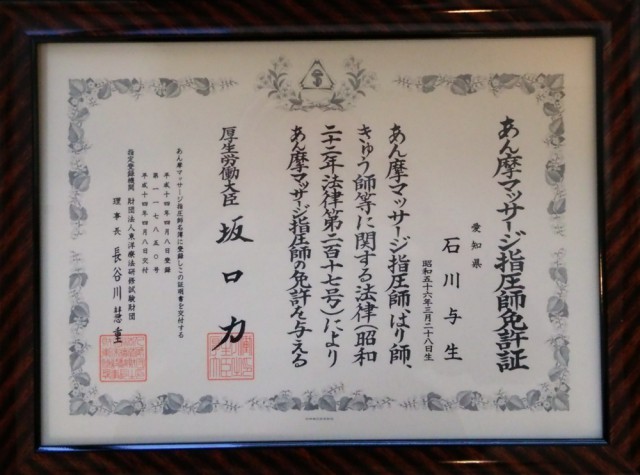 あん摩マッサージ指圧師免許証
愛知県
石川与生
昭和五十六年三月二十八日生
あん摩マッサージ指圧師、はり師、
きゅう師等に関する法律(昭和
二十二年法律第二百十七号)により
あん摩マッサージ指圧師の免許を与える
厚生労働大臣 坂口力
あん摩マッサージ指圧師名簿に登録しこの証明書を交付する
平成十四年四月八日登録
第一一七八五号
平成十四年四月八日交付
指定登録機関 財団法人東洋療法研修試験財団
理事長 長谷川慧重